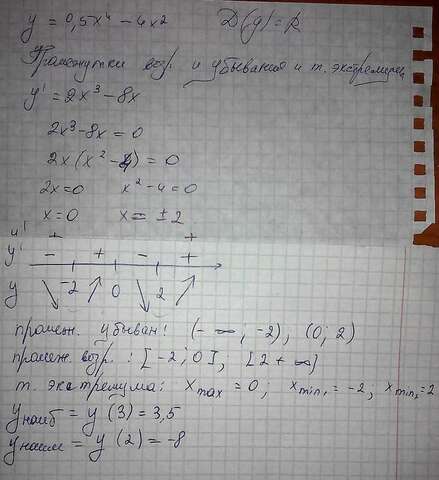 y = 0,5x⁴ − 4x² D(y)=R
Промежутки возр. и убывания и т. экстремума
y' = 2x³ − 8x
2x³ − 8x = 0
2x(x² − 4) = 0
2x=0 x² − 4 = 0
x=0 x = ±2
y' + +
y' − + − +
y -2 0 2
промеж. убыван: (− ∞, −2), (0; 2)
промеж. возр.: [−2; 0]; [2 + ∞)
т. экстремума: xmax = 0; xmin₁ = −2, xmin₂ = 2
yнаиб = y (3) = 3,5
yнаим = y (2) = −8